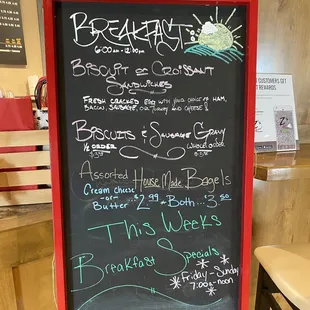 BREAKFAST
6:00am - 12:00pm
BISCUIT or CROISSANT
SANDWICHES
FRESH CRACKED EGG WITH YOUR CHOICE of HAM,
BACON, SAUSAGE, OR TURKEY AND CHEESE
BISCUITS & SAUSAGE GRAVY
½ ORDER
WHOLE ORDER
Assorted House Made Bagels
Cream cheese
-or-
Butter $2.99 - Both...$3.50
This Weeks
Breakfast Specials
Friday - Sunday
7:00am - noon
CUSTOMERS GET
REWARDS